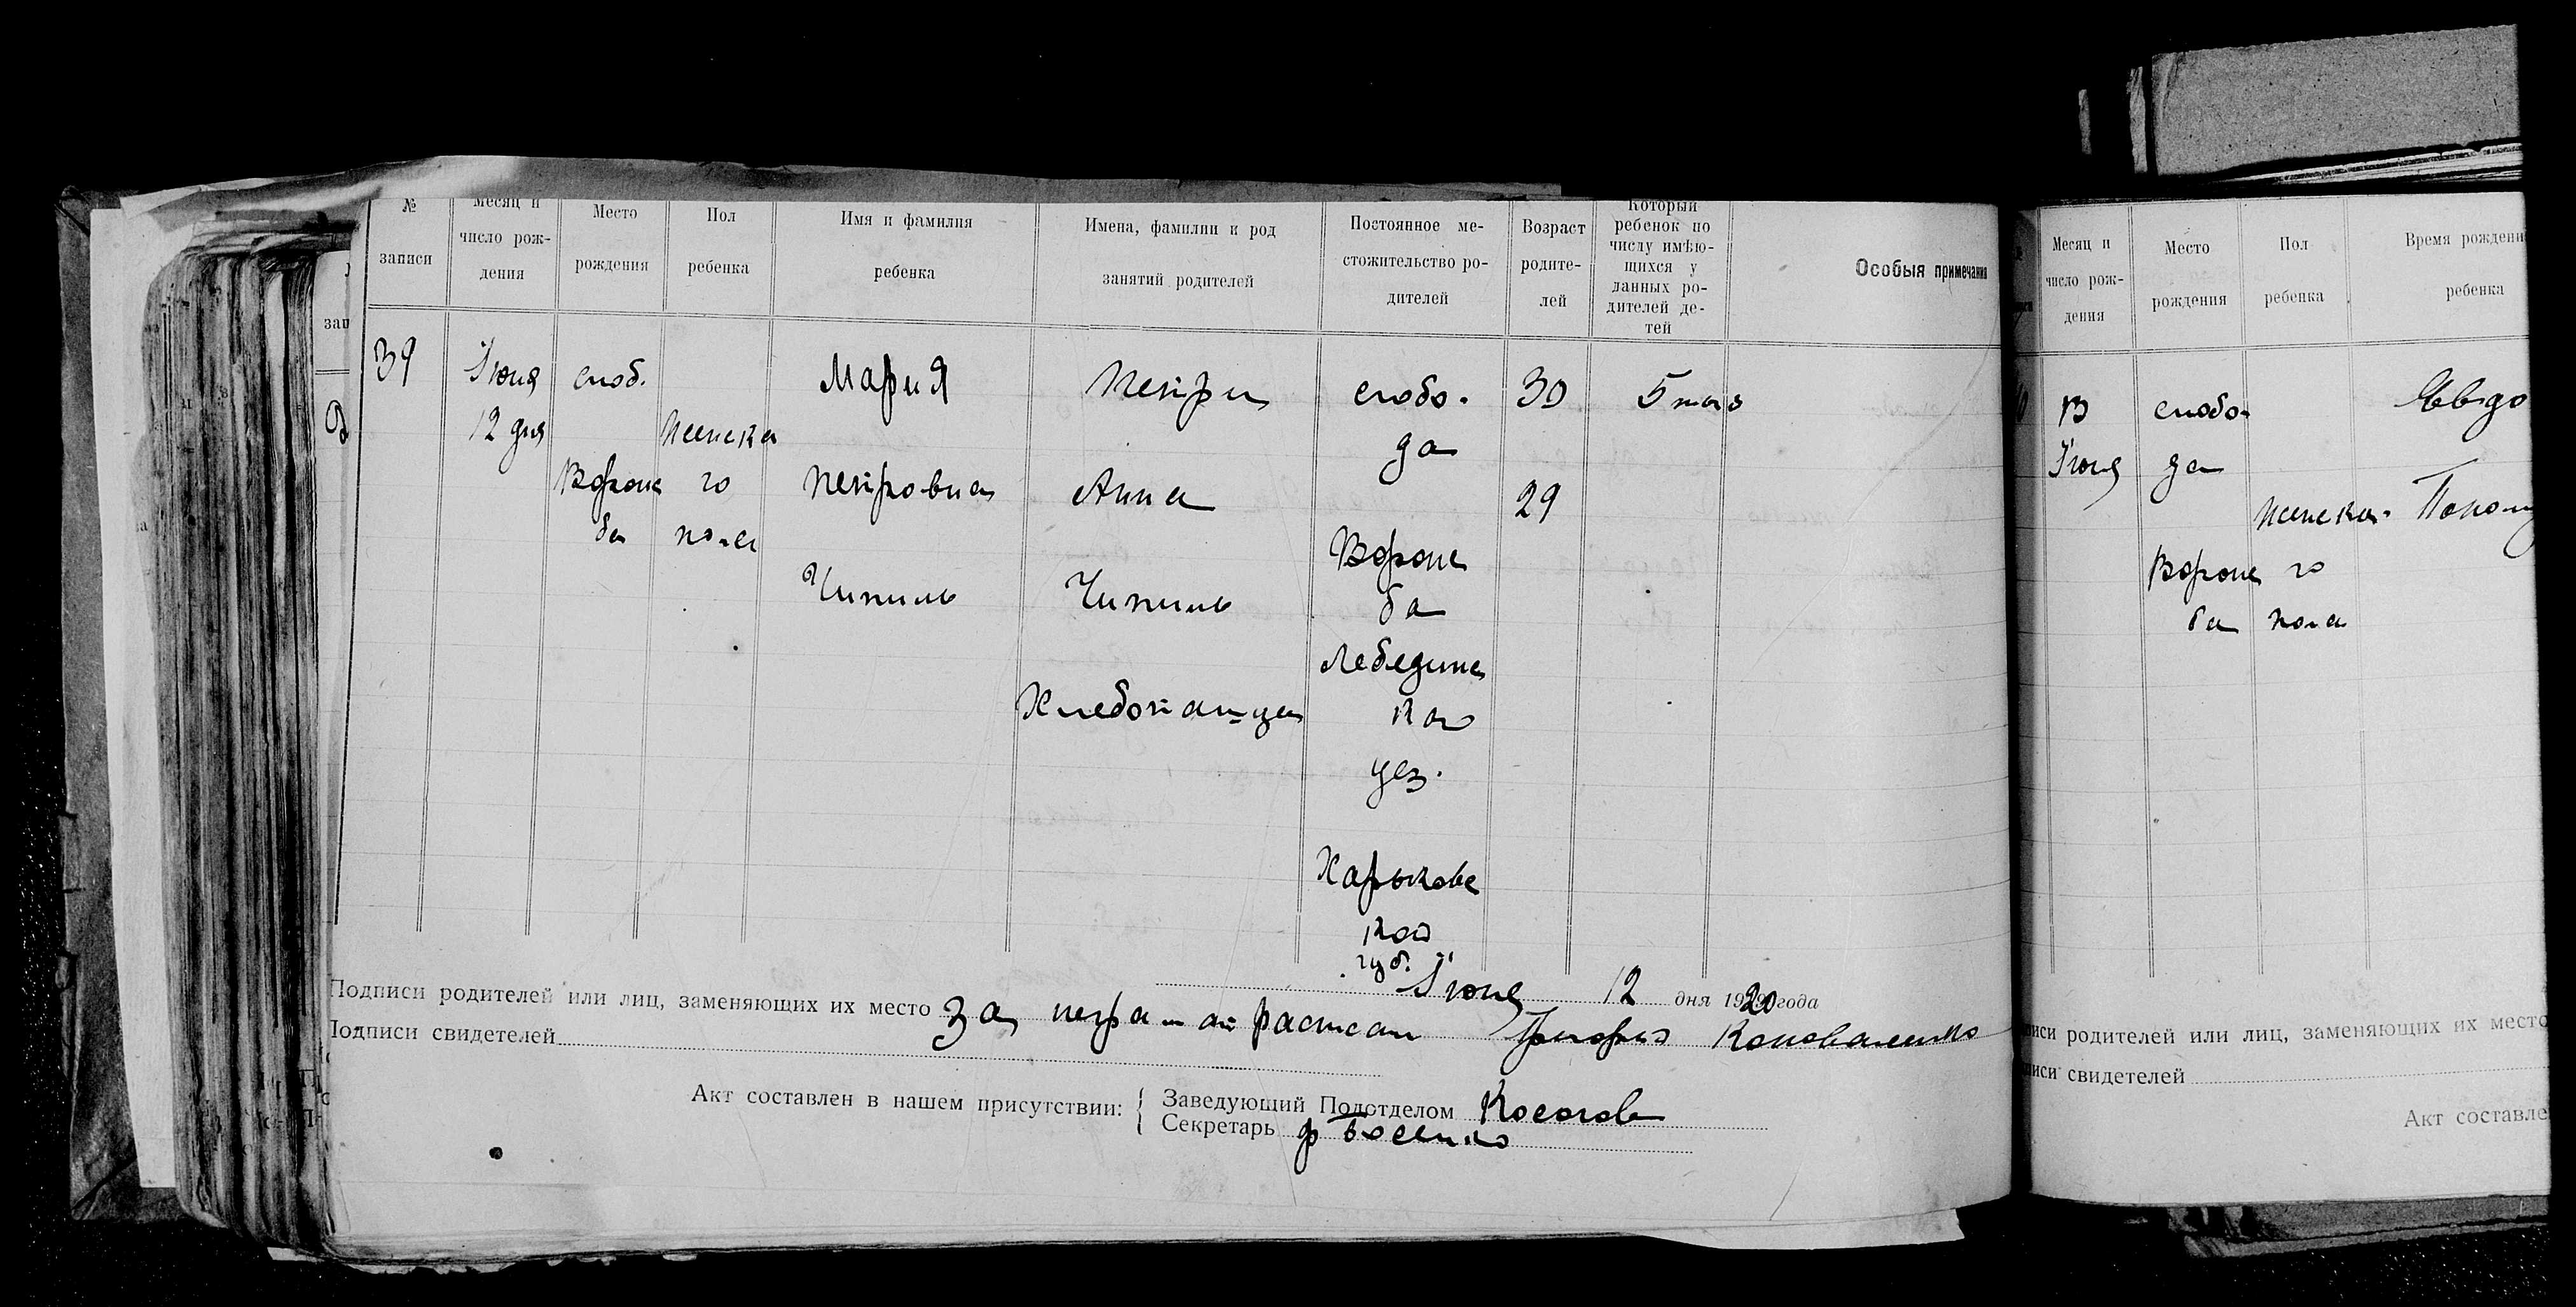 № записи
Месяц и число рож-дения
Место рождения
Пол ребенка
Имя и фамилия ребенка
Имена, фамилии и род занятий родителей
Постоянное ме-стожительство ро-дителей
Возраст родите-лей
Который ребенок по числу имѣю-щихся у данных ро-дителей де-тей
Особыя примечания
39
Июня
12 дня
слоб.
Ворож
ба
женска
го
пола
Мария
Петровна
Чипиль
Петр и
Анна
Чипиль
Хлебопашца
слобо-
да
Ворож
ба
Лебединс
каго
уез.
Харьковс
кой
губ.
30
29
5 тый
Июня 12 дня 1920 года
Подписи родителей или лиц, заменяющих их место За неграмот расписал Григорий Коноваленко
Подписи свидетелей
Акт составлен в нашем присутствии:
Заведующий Подотделом
Секретарь
зап
Месяц и число рож-дения
Место рождения
Пол ребенка
Время рождени
ребенка
13
Июня
слобо-
да
Ворож
ба
женска-
го
пола
Евдо
писи родителей или лиц, заменяющих их место
писи свидетелей
Акт составле